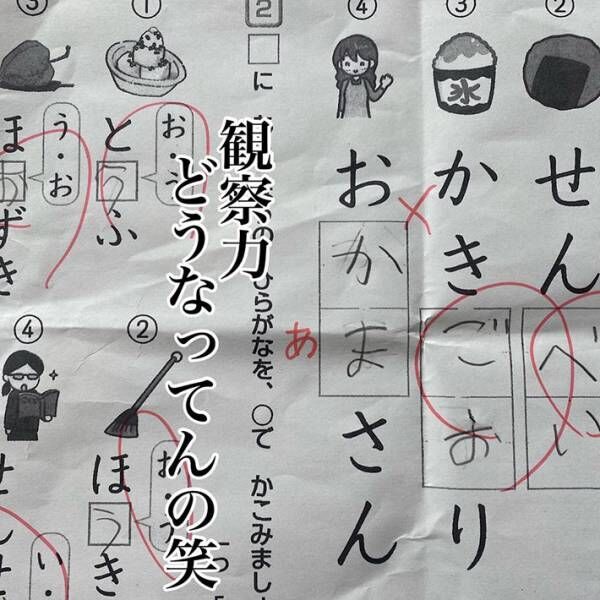 ②
せんべい
③
氷
かきごおり
④
おかまさん
あ
2
□に
の
ひらがなを、○で かこみまし
観察力
どうなってんの笑
①
お・う
とうふ
②
お・う
ほうき
③
う・お
ほおずき
④
い・
せんせ